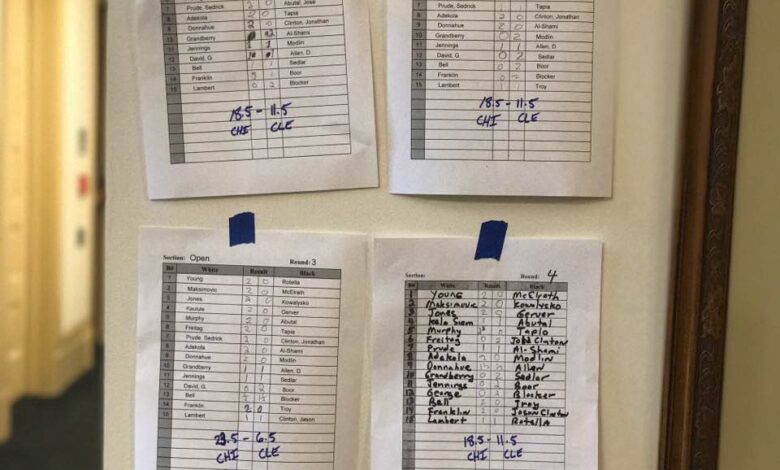 Prude, Sedrick 2 0 Abutal, José
8 Adekola 2 0 Tapia
9 Donnahue 2 0 Clinton, Jonathan
10 Grandberry 0 2 Al-Shami
11 Jennings 1 1 Modlin
12 David, G. Allen, D.
13 Bell 1 Sedlar
14 Franklin Boor
15 Lambert 0 2 Blocker
18.5 - 11.5
CHI CLE
7 Prude, Sedrick 1 1 Tapia
8 Adekola 2 0 Clinton, Jonathan
9 Donnahue 2 0 Al-Shami
10 Grandberry 0 2 Modlin
11 Jennings 1 1 Allen, D.
12 David, G. 0 2 Sedlar
13 Bell 0 2 Boor
14 Franklin 0 2 Blocker
15 Lambert 1 1 Troy
18.5 - 11.5
CHI CLE
Section: Open Round: 3
B# White Result Black
1 Young 2 0 Rotella
2 Maksimovic 2 0 McElrath
3 Jones 2 0 Kowalysko
4 2 0
5 Murphy 2 0 Abutal
6 Freitag 2 0 Tapia
7 Prude, Sedrick 2 0 Clinton, Jonathan
8 Adekola 2 0 Al-Shami
9 Donnahue 2 0 Modlin
10 Grandberry 1 1 Allen, D.
11 Jennings 1 1 Sedlar
12 David, G. 0 2 Boor
13 Bell Blocker
14 Franklin 2 0 Troy
15 Lambert 1 1 Clinton, Jason
23.5 - 6.5
CHI CLE
Section: Round: 4
B# White Result Black
1 Young 2 0 McElrath
2 Maksimovic 2 0 Kowalysko
3 Jones 2 0 Gerver
4 Kala Siam 2 0 Abutal
5 Murphy Tapia
6 Freitag 0 2 John Clinton
7 Prude 1 1 Al-Shami
8 Adekola Modlin
9 Donnahue Allen
10 Grandberry 0 2 Sedlar
11 Jennings 0 2 Boor
12 George 0 2 Blocker
13 Bell 2 0 Troy
14 Franklin 2 0 Jason Clinton
15 Lambert 1 1 Rotella
18.5 - 11.5
CHI CLE